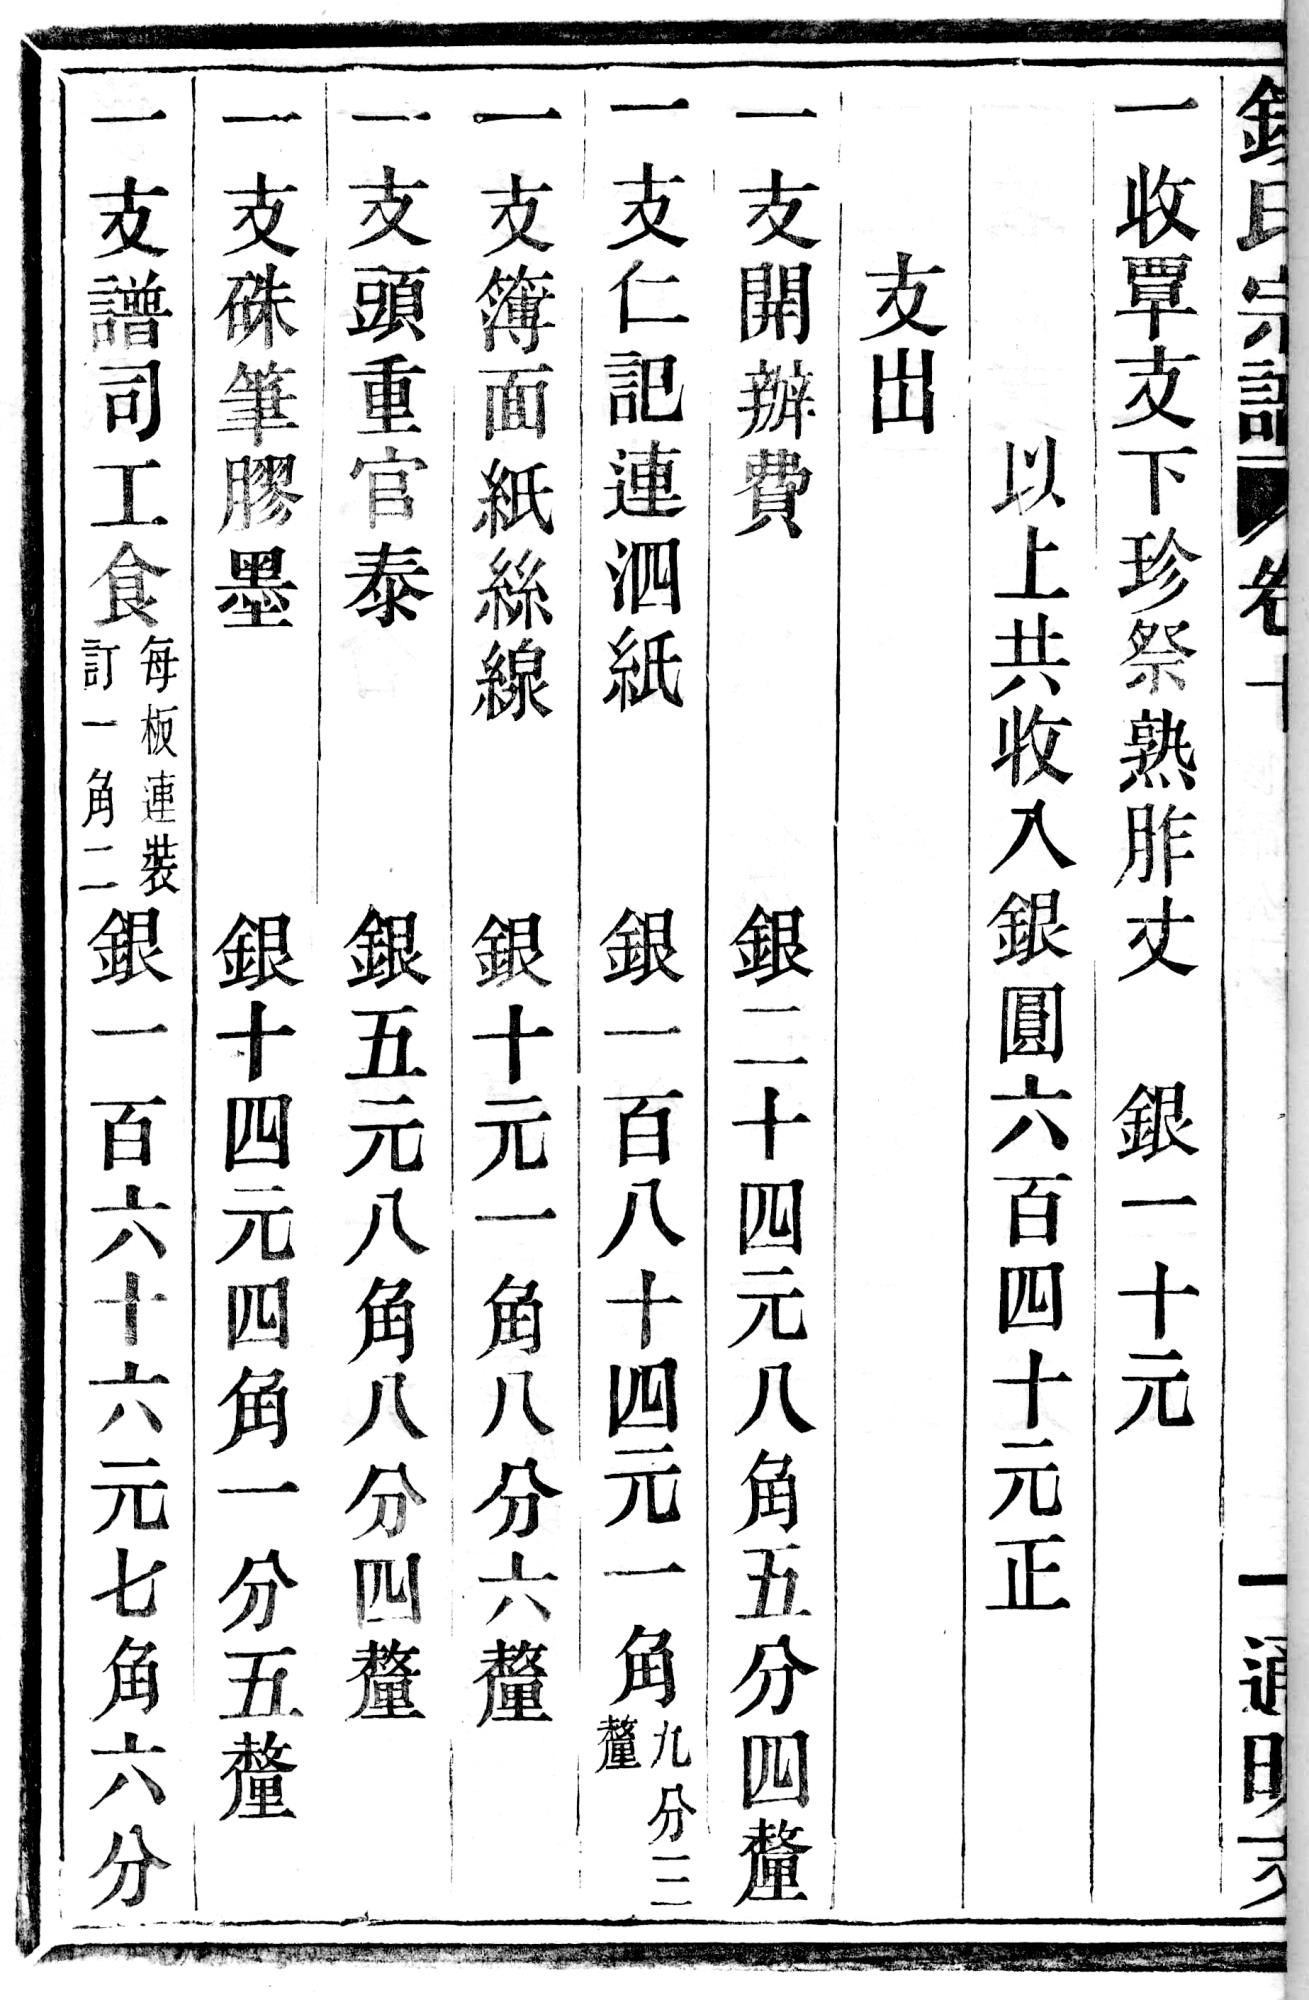 錢氏宗譜 卷十 一 通明支
一收覃支下珍祭熟胙丈 銀一十元
以上共收入銀圓六百四十元正
支出
一支開辦費 銀二十四元八角五分四釐
一支仁記連泗紙 銀一百八十四元一角九分二釐
一支簿面紙絲線 銀十元一角八分六釐
一支頭重官泰 銀五元八角八分四釐
一支硃筆膠墨 銀十四元四角一分五釐
一支譜司工食每板連裝訂一角二 銀一百六十六元七角六分